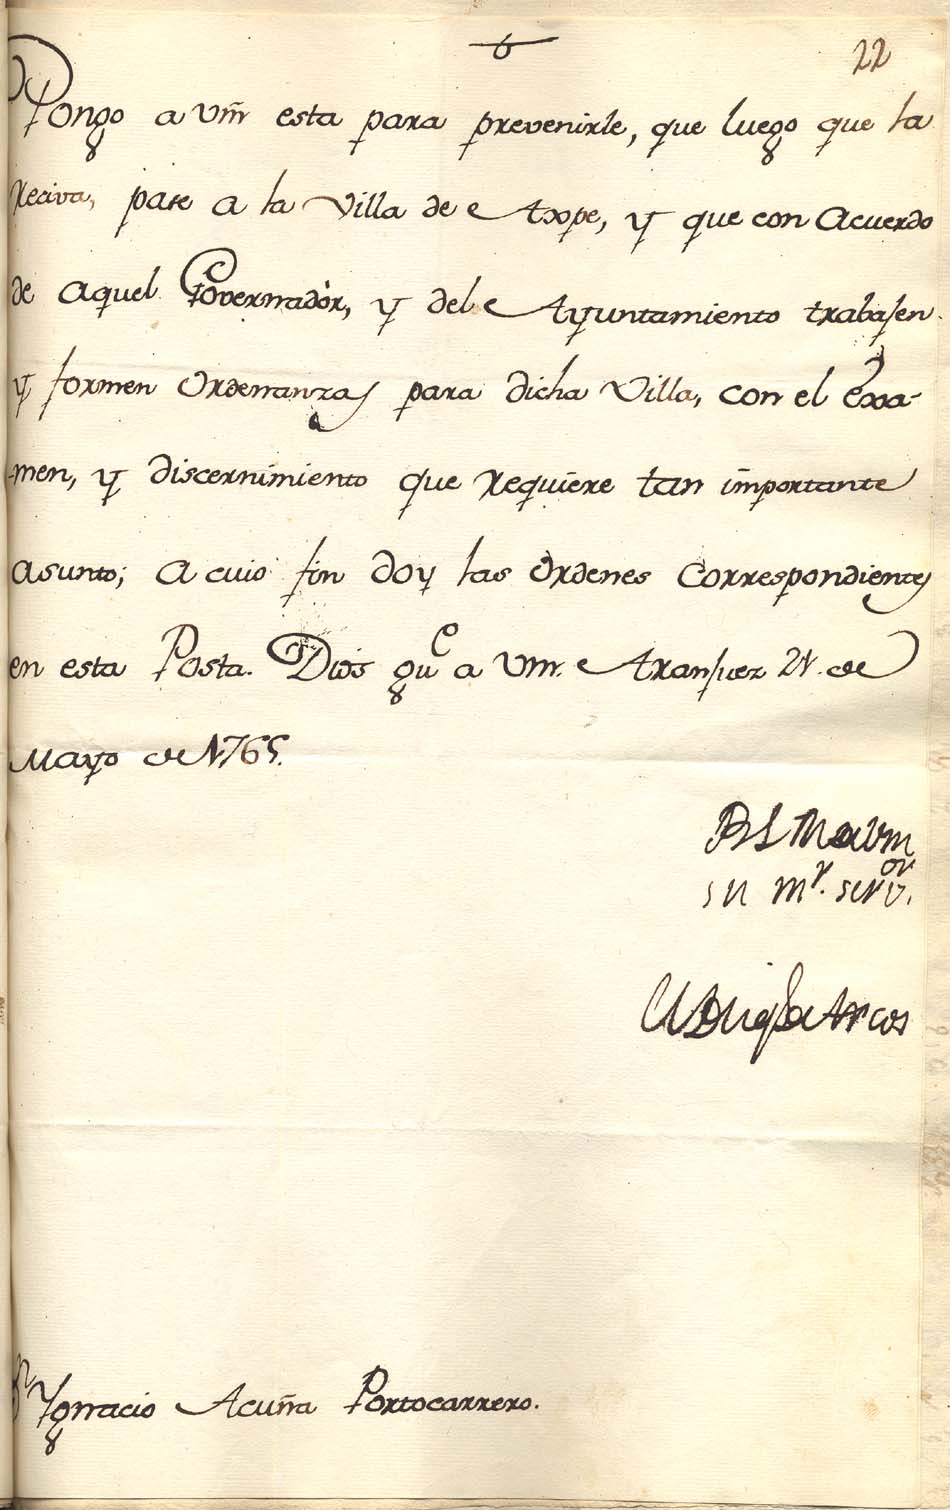 22
Pongo a Vm̃ esta para prevenirle, que luego que la
reciva, pase a la Villa de Axpe, y que con acuerdo
de aquel Governador, y del Ayuntamiento trabajen
y formen Ordenanzas para dicha Villa, con el Exa-
-men, y discernimiento que requiere tan importante
asunto; a cuio fin doy las Ordenes correspondientes
en esta Posta. Dios gu.e a Vm. Aranjuez 21 de
Mayo de 1765.
BLM a Vm
su mr. servor.
El Duq de Arcos
Sr Ygnacio Acuña Portocarrero.